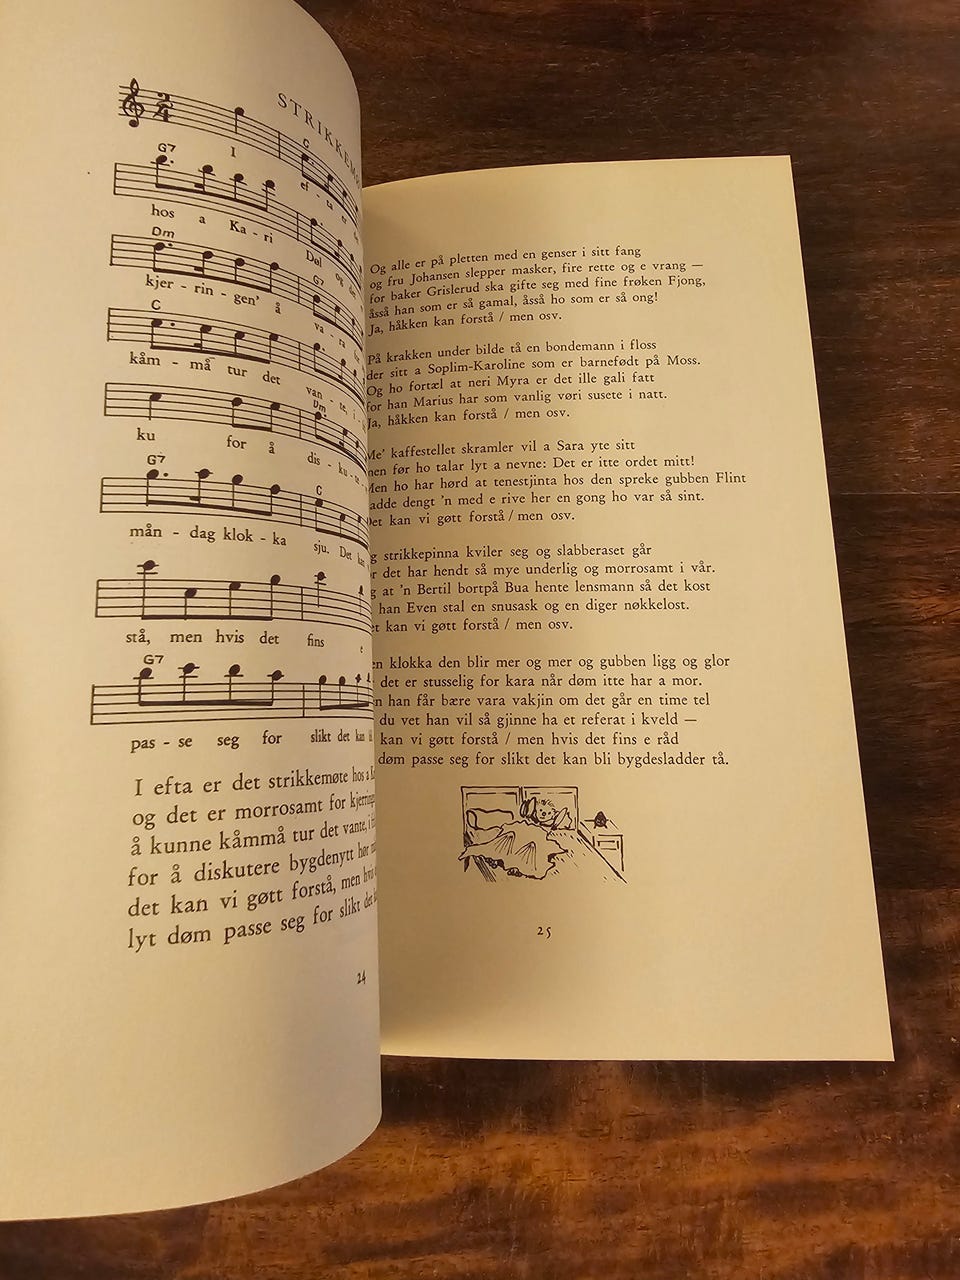 STRIKKEM
I ef - ta er de
G
G7
hos a Ka - ri Døl og det
Dm G7
kjer - rin - gen' å va - ra for
C
kåm - må tur det van - te, i
Dm
ku for å dis - ku - te
G7 G
mån - dag klok - ka sju. Det kan
stå, men hvis det fins e
G7
pas - se seg for slikt det kan
I efta er det strikkemøte hos a
og det er morrosamt for
å kunne kåmmå tur det vante,
for å diskutere bygdenytt hør
det kan vi gøtt forstå, men
lyt døm passe seg for slikt det
24
Og alle er på pletten med en genser i sitt fang
og fru Johansen slepper masker, fire rette og e vrang —
for baker Grislerud ska gifte seg med fine frøken Fjong,
åsså han som er så gamal, åsså ho som er så ong!
Ja, håkken kan forstå / men osv.
På krakken under bilde tå en bondemann i floss
der sitt a Soplim-Karoline som er barnefødt på Moss.
Og ho fortæl at neri Myra er det ille gali fatt
for han Marius har som vanlig vøri susete i natt.
Ja, håkken kan forstå / men osv.
Me' kaffestellet skramler vil a Sara yte sitt
men før ho talar lyt a nevne: Det er itte ordet mitt!
Men ho har hørd at tenestjinta hos den spreke gubben Flint
adde dengt 'n med e rive her en gong ho var så sint.
Det kan vi gøtt forstå / men osv.
g strikkepinna kviler seg og slabberaset går
r det har hendt så mye underlig og morrosamt i vår.
g at 'n Bertil bortpå Bua hente lensmann så det kost
han Even stal en snusask og en diger nøkkelost.
et kan vi gøtt forstå / men osv.
en klokka den blir mer og mer og gubben ligg og glor
det er stusselig for kara når døm itte har a mor.
n han får bære vara vakjin om det går en time tel
du vet han vil så gjinne ha et referat i kveld —
kan vi gøtt forstå / men hvis det fins e råd
døm passe seg for slikt det kan bli bygdesladder tå.
25